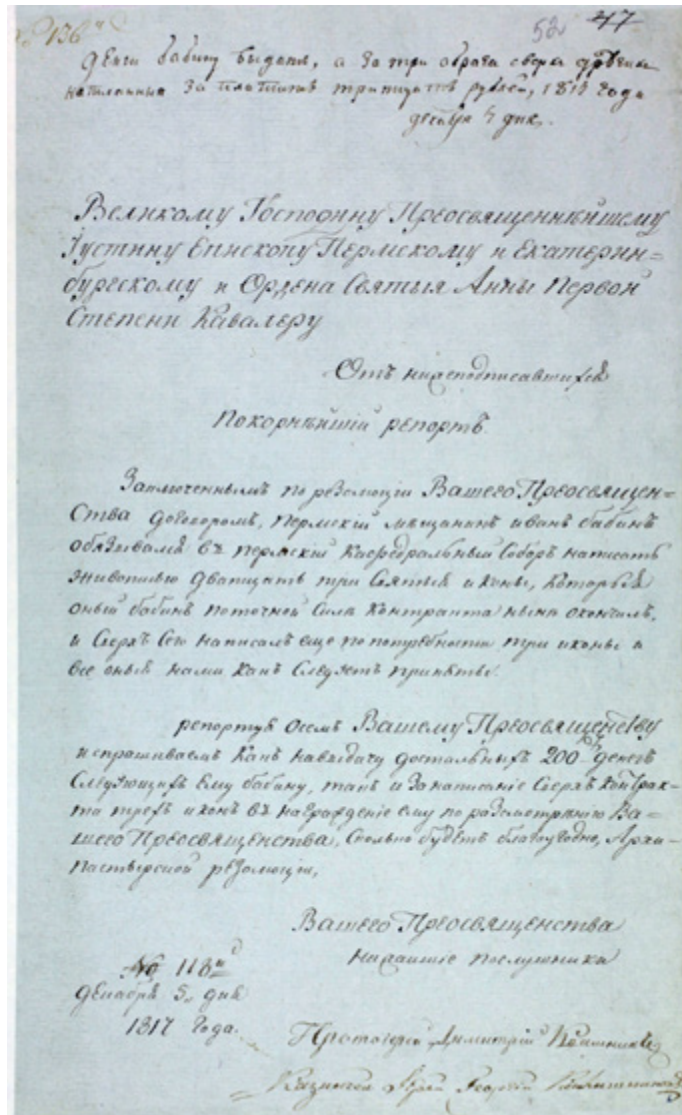 № 136й
52 47
Деньги бабину выдать, а за три образа сверх
написанные заплатить тритцать рублей, 1817 года
декабря 7 дня.
Великому Господину Преосвященнѣйшему
Іустину Епископу Пермскому и Екатерин=
бургскому и Ордена Святыя Анны Первой
Степени Кавалеру
Отъ нижеподписавшихся
Покорнѣйшій репортъ.
Заключеннымъ по резолюціи Вашего Преосвящен=
ства договоромъ, Пермскій мѣщанинъ иванъ бабинъ
обязывался въ пермскій Кафедральный Соборъ написать
живописью дватцать три Святыя иконы, которыя
оный бабинъ по точной Силѣ Контракта нынѣ окончилъ,
и Сверхъ Сего написалъ еще по потребности три иконы и
все оныя нами какъ Слѣдуетъ приняты.
репортуя о семъ Вашему Преосвященству
испрашиваемъ какъ на выдачу достальныхъ 200 денегъ
Слѣдующихъ ему бабину, такъ и за написаніе Сверхъ контрак=
та трехъ иконъ въ награжденіе ему по разсмотрѣнію Ва=
шего Преосвященства, Сколько будетъ благоугодно, Архи=
пастырской резолюціи,
Вашего Преосвященства
нижайшіе послушники
№ 118й
декабря 5. дня
1817 года.
Протоіерей Димитрій
Іерей Георгій